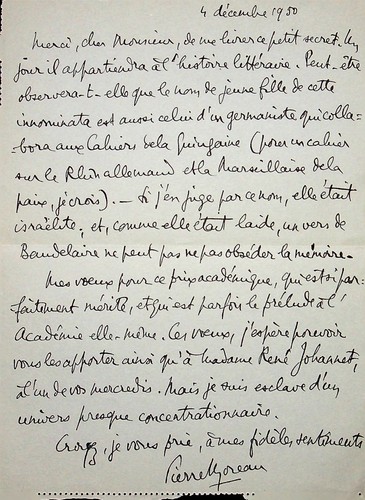 4 décembre 1950
Merci, cher Monsieur, de me livrer ce petit secret. Un
jour il appartiendra à l'histoire littéraire. Peut-être
observera-t-elle que le nom de jeune fille de cette
innominata est aussi celui d'un germaniste qui colla-
bora aux Cahiers de la Quinzaine (pour un cahier
sur le Rhin allemand et la Marseillaise de la
paix, je crois). — Si j'en juge par ce nom, elle était
israélite, et, comme elle était laide, un vers de
Baudelaire ne peut pas ne pas obséder la mémoire.
Mes vœux pour ce prix académique, qui est si par-
faitement mérité, et qui est parfois le prélude à l'
Académie elle-même. Ces vœux, j'espère pouvoir
vous les apporter ainsi qu'à Madame René Johannet,
à l'un de vos mercredis. Mais je suis esclave d'un
univers presque concentrationnaire.
Croyez, je vous prie, à mes fidèles sentiments
Pierre Moreau